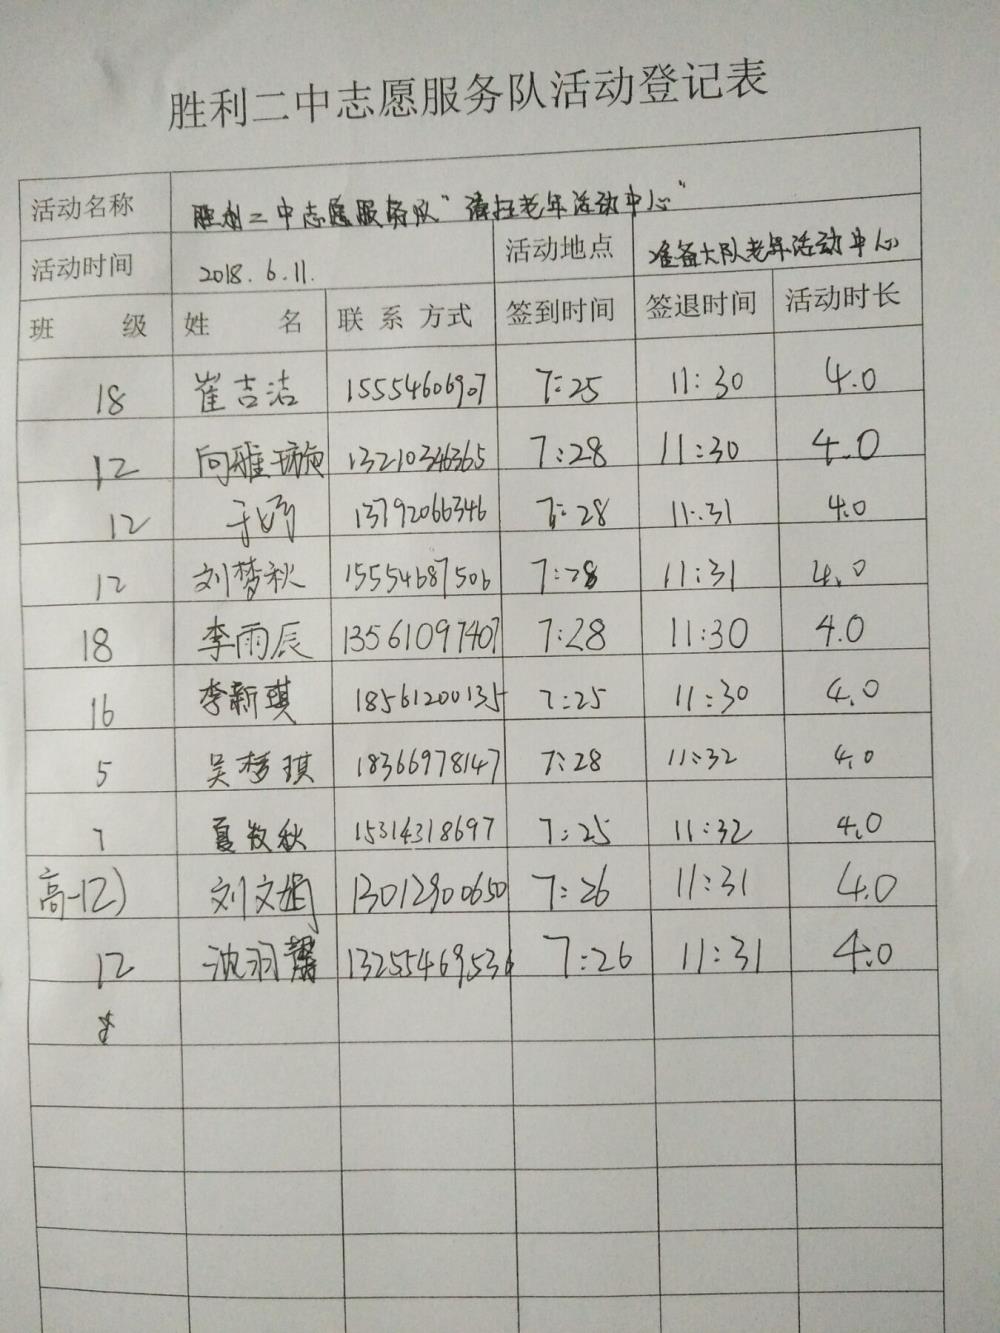 胜利二中志愿服务队活动登记表
活动名称 胜利二中志愿服务队"清扫老年活动中心"
活动时间 2018.6.11. 活动地点 准备大队老年活动中心
班 级 姓 名 联 系 方式 签到时间 签退时间 活动时长
18 崔吉洁 15554606907 7:25 11:30 4.0
12 向雅璇 13210346365 7:28 11:30 4.0
12 13792066346 7:28 11:31 4.0
12 刘梦秋 15554687506 7:28 11:31 4.0
18 李雨辰 13561097407 7:28 11:30 4.0
16 李新琪 18561200135 7:25 11:30 4.0
5 吴梦琪 18366978147 7:28 11:32 4.0
7 夏牧秋 15314318697 7:25 11:32 4.0
高一12) 刘文娟 13012900650 7:26 11:31 4.0
12 沈羽馨 13255469536 7:26 11:31 4.0